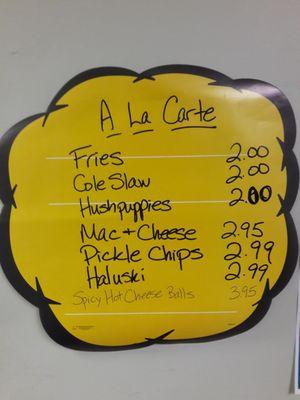 A La Carte
Fries 2.00
Cole Slaw 2.00
Hushpuppies 2.00
Mac + Cheese 2.95
Pickle Chips 2.99
Haluski 2.99
Spicy Hot Cheese Balls 3.95